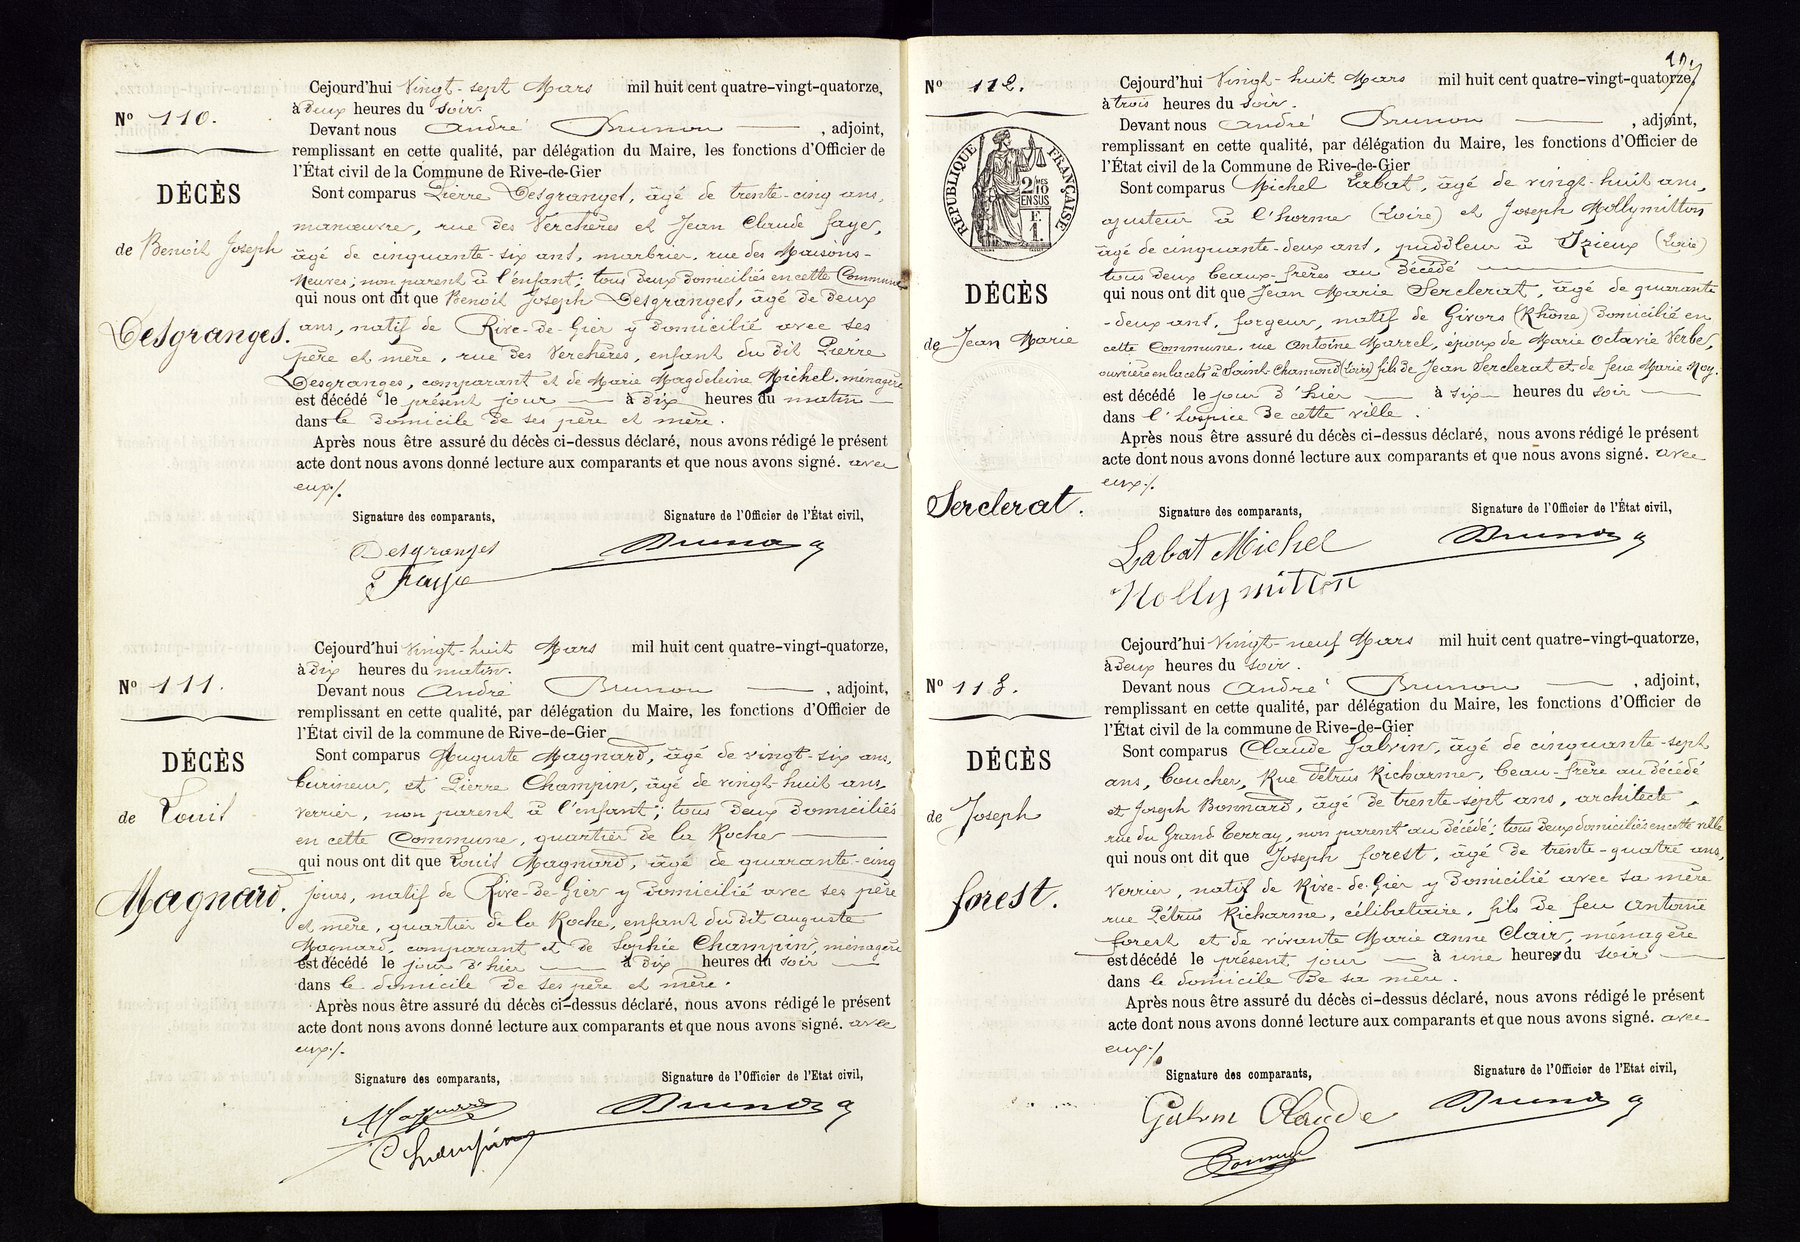 Cejourd'hui Vingt-sept Mars mil huit cent quatre-vingt-quatorze,
à Deux heures du soir.
N° 110.
Devant nous André Brunon , adjoint,
remplissant en cette qualité, par délégation du Maire, les fonctions d'Officier de
l'État civil de la Commune de Rive-de-Gier
DÉCÈS
Sont comparus Pierre Desgranges, âgé de trente-cinq ans,
manœuvre, rue des Verchères et Jean Claude Faye,
de Benoit Joseph
âgé de cinquante-six ans, marbrier, rue des Maisons-
Neuves; non parent à l'enfant; tous deux domiciliés en cette Commune
qui nous ont dit que Benoit Joseph Desgranges, âgé de deux
Desgranges.
ans, natif de Rive-de-Gier y domicilié avec ses
père et mère, rue des Verchères, enfant du dit Pierre
Desgranges, comparant et de Marie Magdeleine Michel, ménagère
est décédé le présent jour à dix heures du matin
dans le domicile de ses père et mère.
Après nous être assuré du décès ci-dessus déclaré, nous avons rédigé le présent
acte dont nous avons donné lecture aux comparants et que nous avons signé. avec
eux./.
Signature des comparants, Signature de l'Officier de l'État civil,
Desgranges Brunon
Faye
Cejourd'hui Vingt-huit Mars mil huit cent quatre-vingt-quatorze,
à Dix heures du matin.
N° 111.
Devant nous André Brunon , adjoint,
remplissant en cette qualité, par délégation du Maire, les fonctions d'Officier de
l'État civil de la commune de Rive-de-Gier
DÉCÈS
Sont comparus Auguste Magnard, âgé de vingt-six ans,
burineur, et Pierre Champin, âgé de vingt-huit ans,
de Louis
verrier, non parent à l'enfant; tous deux domiciliés
en cette Commune, quartier de la Roche
qui nous ont dit que Louis Magnard, âgé de quarante-cinq
Magnard.
jours, natif de Rive-de-Gier y domicilié avec ses père
et mère, quartier de la Roche, enfant du dit Auguste
Magnard, comparant et de Sophie Champin, ménagère
est décédé le jour d'hier à dix heures du soir
dans le domicile de ses père et mère.
Après nous être assuré du décès ci-dessus déclaré, nous avons rédigé le présent
acte dont nous avons donné lecture aux comparants et que nous avons signé. avec
eux./.
Signature des comparants, Signature de l'Officier de l'Etat civil,
Magnard Brunon
Champin
Cejourd'hui Vingt-huit Mars mil huit cent quatre-vingt-quatorze,
N° 112.
à trois heures du soir.
Devant nous André Brunon , adjoint,
remplissant en cette qualité, par délégation du Maire, les fonctions d'Officier de
l'État civil de la Commune de Rive-de-Gier
RÉPUBLIQUE FRANÇAISE
2/10 MES
EN SUS
F.
1.
Sont comparus Michel Labat, âgé de vingt-huit ans,
ajusteur à l'horme (Loire) et Joseph Mollymitton
âgé de cinquante-deux ans, puddleur à Izieux (Loire)
tous deux beaux-frères au décédé
DÉCÈS
qui nous ont dit que Jean Marie Serclerat, âgé de quarante
-deux ans, forgeur, natif de Givors (Rhône) domicilié en
de Jean Marie
cette Commune, rue Antoine Marrel, époux de Marie Octavie Verbe,
ouvrière en lacets à Saint-Chamond (Loire) fils de Jean Serclerat et de feue Marie Noy.
est décédé le jour d'hier à six heures du soir
dans l'hospice de cette ville.
Après nous être assuré du décès ci-dessus déclaré, nous avons rédigé le présent
acte dont nous avons donné lecture aux comparants et que nous avons signé. avec
eux./.
Serclerat.
Signature des comparants, Signature de l'Officier de l'État civil,
Labat Michel Brunon
Mollymitton
Cejourd'hui Vingt-neuf Mars mil huit cent quatre-vingt-quatorze,
à Deux heures du soir.
N° 113.
Devant nous André Brunon , adjoint,
remplissant en cette qualité, par délégation du Maire, les fonctions d'Officier de
l'État civil de la commune de Rive-de-Gier
DÉCÈS
Sont comparus Claude Galvin, âgé de cinquante-sept
ans, boucher, Rue Pétrus Richarme, beau-frère au décédé
de Joseph
et Joseph Bonnard, âgé de trente-sept ans, architecte,
rue du Grand Terray, non parent au décédé; tous deux domiciliés en cette ville
qui nous ont dit que Joseph forest, âgé de trente-quatre ans,
forest.
verrier, natif de Rive-de-Gier y domicilié avec sa mère
rue Pétrus Richarme, célibataire, fils de feu Antoine
forest et de vivante Marie Anne Clair, ménagère
est décédé le présent jour à une heure du soir
dans le domicile de sa mère.
Après nous être assuré du décès ci-dessus déclaré, nous avons rédigé le présent
acte dont nous avons donné lecture aux comparants et que nous avons signé. avec
eux./.
Signature des comparants, Signature de l'Officier de l'Etat civil,
Galvin Claude Brunon
Bonnard